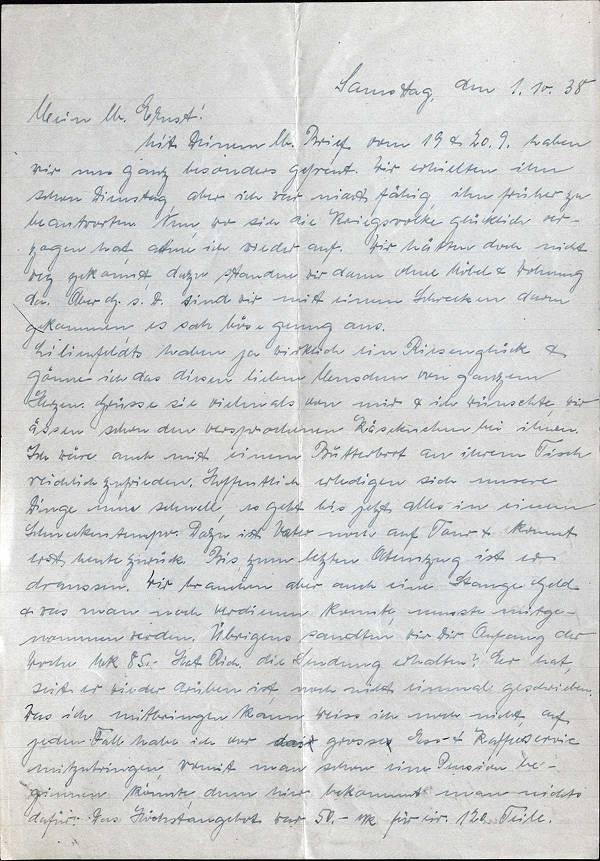 Samstag, den 1.10.38
Mein lb. Ernst!
Mit Deinem lb. Brief vom 19 & 20.9. haben
wir uns ganz besonders gefreut. Wir erhielten ihn
schon Dienstag, aber ich war nicht fähig, ihn früher zu
beantworten. Nun, wo sich die Kriegswolke glücklich ver-
zogen hat atme ich wieder auf. Wir hätten doch nicht
weg gekonnt, dazu standen wir dann ohne Möbel & Wohnung
da. Aber G. s. D. sind wir mit einem Schrecken davon
gekommen es sah böse genug aus.
Lilienfeldts haben ja wirklich ein Riesenglück &
gönne ich das diesen lieben Menschen von ganzem
Herzen. Grüsse sie vielmals von mir & ich wünschte, wir
ässen schon den versprochenen Käsekuchen bei ihnen.
Ich wäre auch mit einem Butterbrot an ihrem Tisch
reichlich zufrieden. Hoffentlich erledigen sich unsere
Dinge nun schnell, es geht bis jetzt alles in einem
Schneckentempo. Dazu ist Vater noch auf Tour & kommt
erst heute zurück. Bis zum letzten Atemzug ist er
draussen. Wir brauchen aber auch eine Stange Geld
& was man noch verdienen konnte, musste mitge-
nommen werden. Übrigens sandten wir Dir Anfang der
Woche Mk 85.- Hat Rich. die Sendung erhalten? Er hat,
seit er wieder drüben ist, noch nicht einmal geschrieben.
Was ich mitbringen kann weiss ich noch nicht, auf
jeden Fall habe ich vor das grosse Ess- & Kaffeeservice
mitzubringen, womit man schon eine Pension be-
ginnen könnte denn hier bekommt man nichts
dafür. Das Höchstangebot war 50.- Mk für cir. 120 Teile.